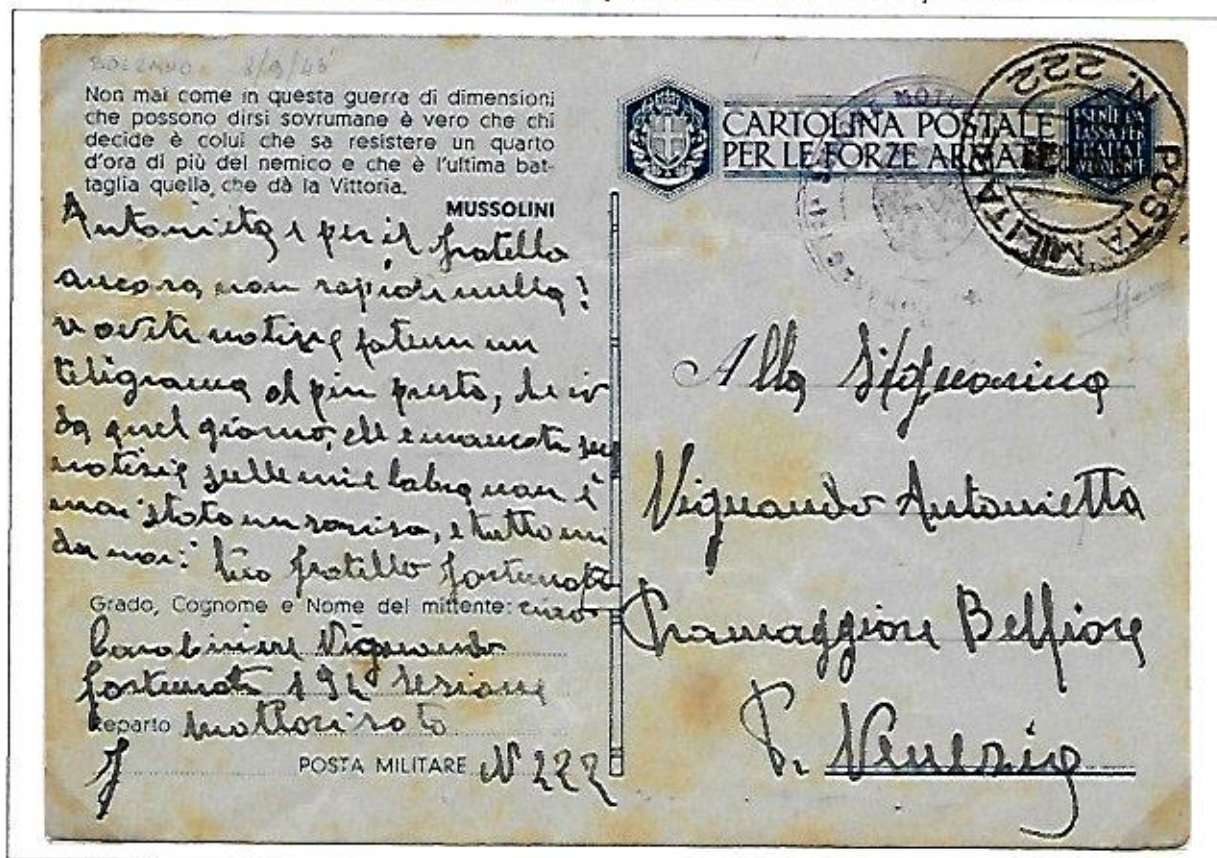 BOLZANO 8/9/43
Non mai come in questa guerra di dimensioni
che possono dirsi sovrumane è vero che chi
decide è colui che sa resistere un quarto
d'ora di più del nemico e che è l'ultima bat-
taglia quella, che dà la Vittoria.
MUSSOLINI
Antonietta e per il fratello
ancora, non nulla!
notizie un
telegrama al più presto, io
da quel giorno, che e mancato sue
notizie sulle mie labra non è
mai stato un soriso, e tutto mi
da noi: tuo fratello fortunato
Grado, Cognome e Nome del mittente: ciao
Carabiniere Vignando
fortunato 192 sezione
Reparto mottorisato
POSTA MILITARE N 222
CARTOLINA POSTALE
PER LE FORZE ARMATE
ESENTE DA
TASSA PER
POSTA MILITARE N. 222
Alla Signorina
Vignando Antonietta
Pramaggiore Belfiore
P. Venezia